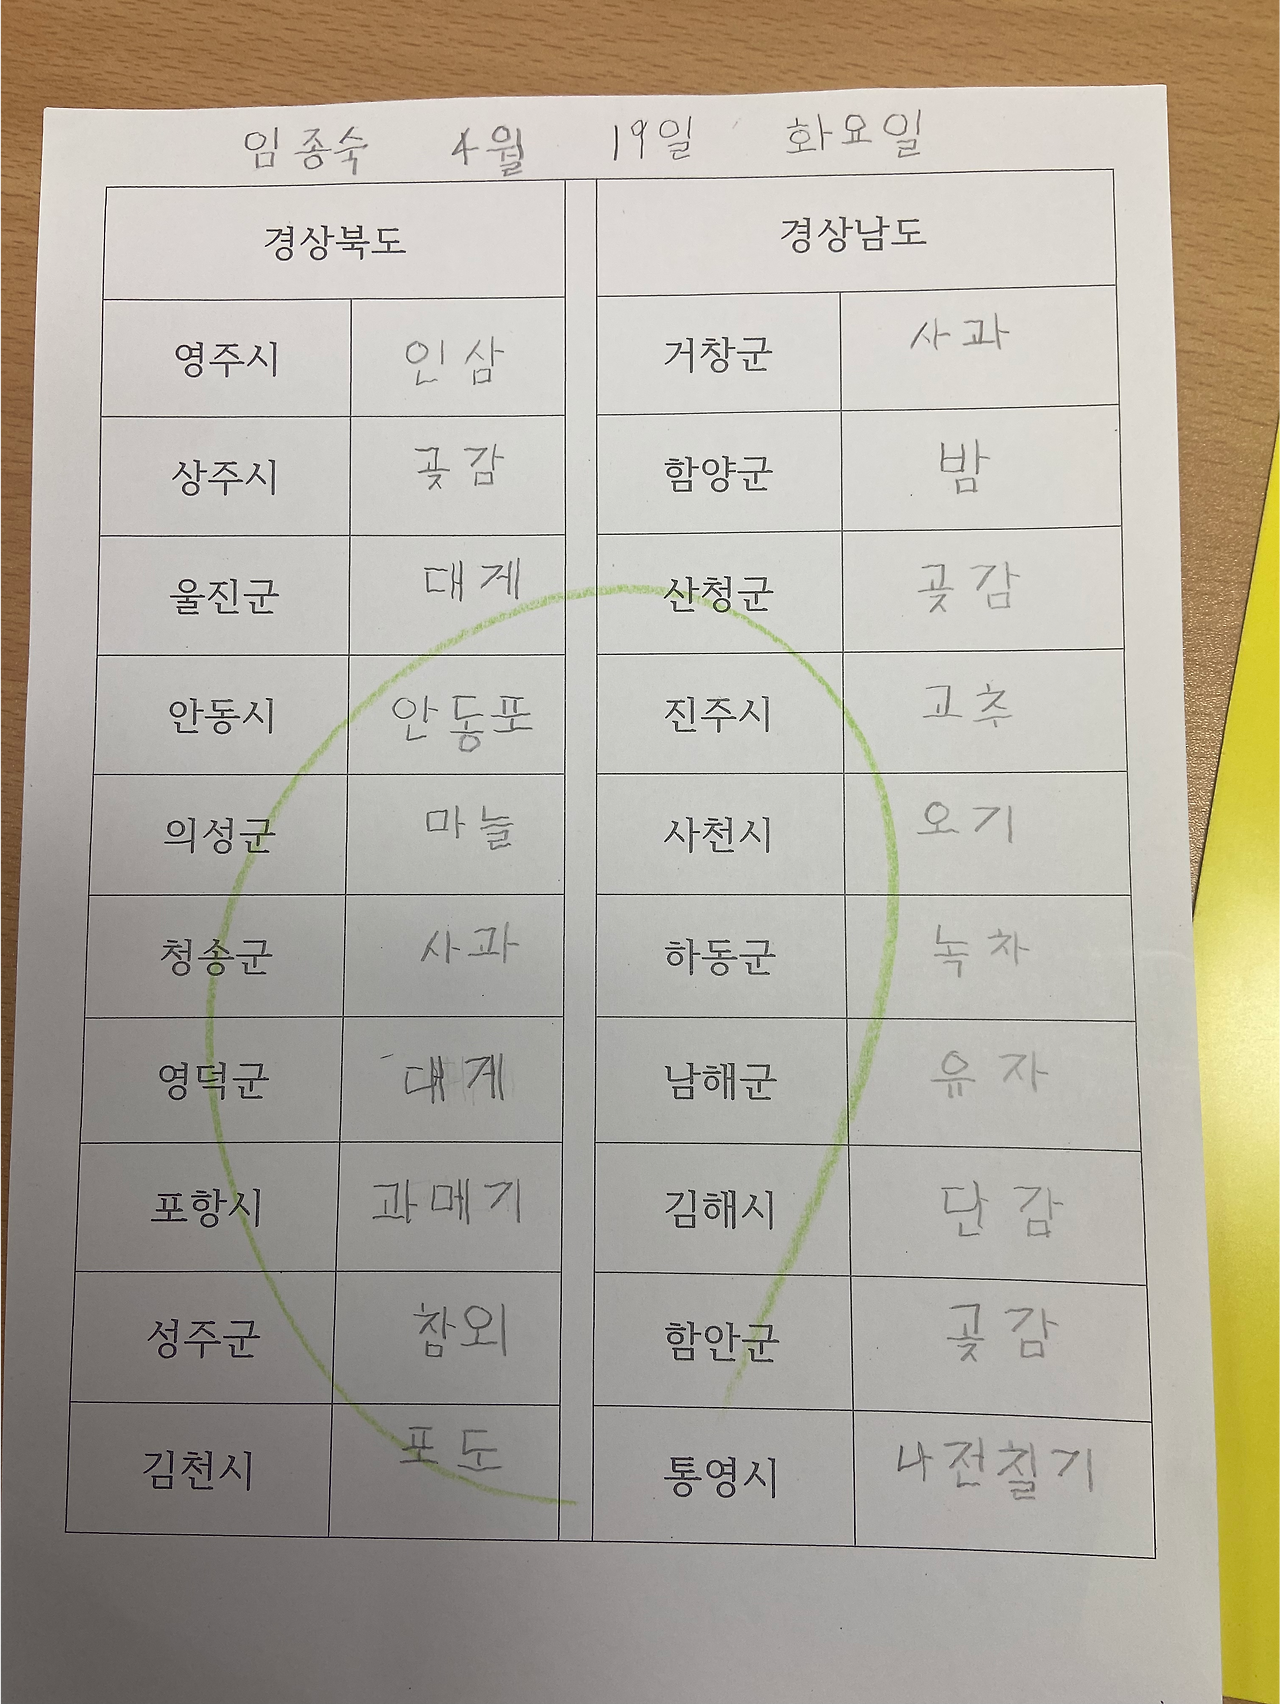 임종숙 4월 19일 화요일
경상북도 경상남도
영주시 인삼 거창군 사과
상주시 곶감 함양군 밤
울진군 대게 산청군 곶감
안동시 안동포 진주시 고추
의성군 마늘 사천시 오기
청송군 사과 하동군 녹차
영덕군 대게 남해군 유자
포항시 과메기 김해시 단감
성주군 참외 함안군 곶감
김천시 포도 통영시 나전칠기